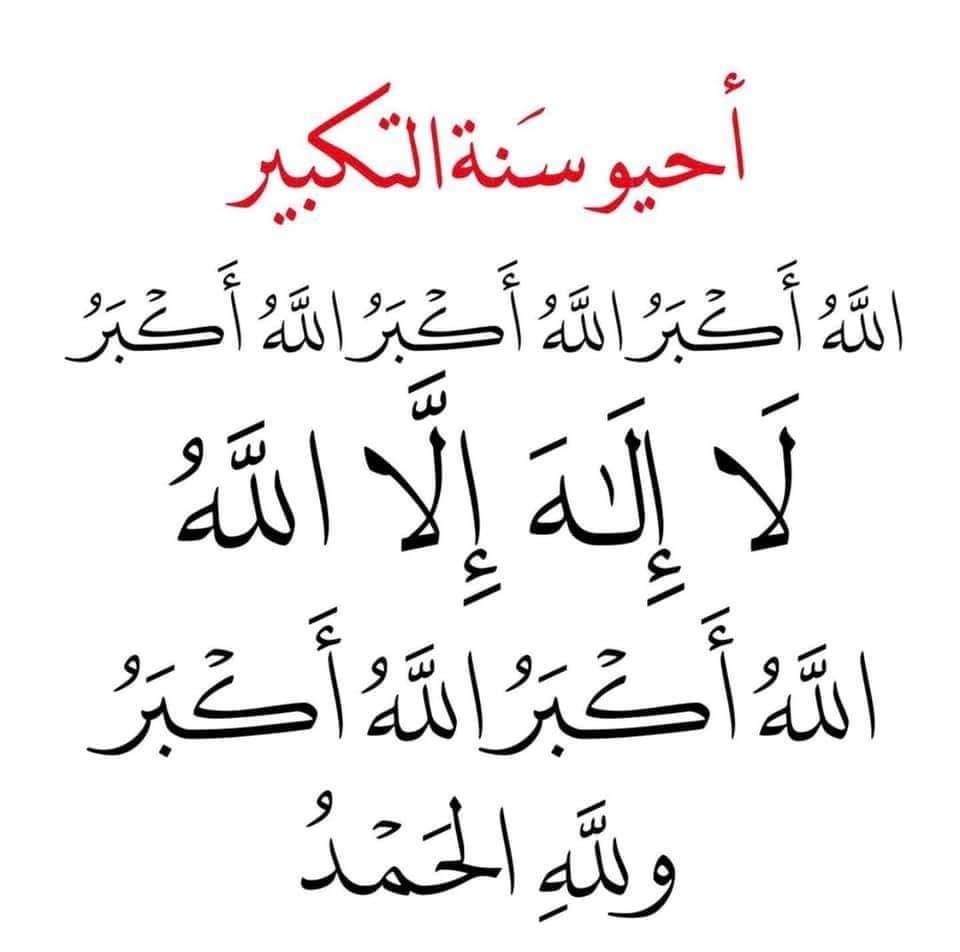 أحيو سَنة التكبير
اللَّهُ أَكْبَرُ اللَّهُ أَكْبَرُ اللَّهُ أَكْبَرُ
لَا إِلَٰهَ إِلَّا اللَّهُ
اللَّهُ أَكْبَرُ اللَّهُ أَكْبَرُ
وللَّهِ الحَمْدُ